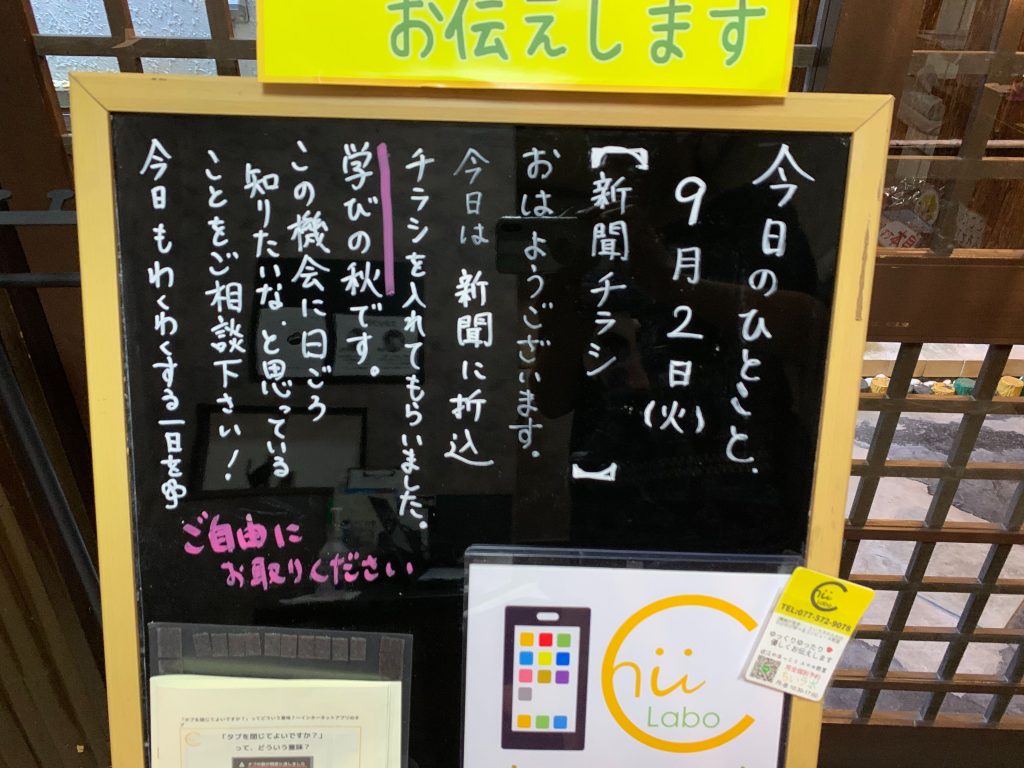 お伝えします
今日のひとこと.
9月2日(火)
【新聞チラシ】
おはようございます.
今日は 新聞に折込
チラシを入れてもらいました.
学びの秋です。
この機会に日ごろ
知りたいな.と思っている
ことをご相談下さい!
今日もわくわくする一日を
ご自由に
お取りください
Chii
Labo
Chii
Labo
TEL:077-572-9078
ゆっくりゆったり
優しくお伝えします
完全個別予約
「タブを閉じてよいですか?」
って、どういう意味?